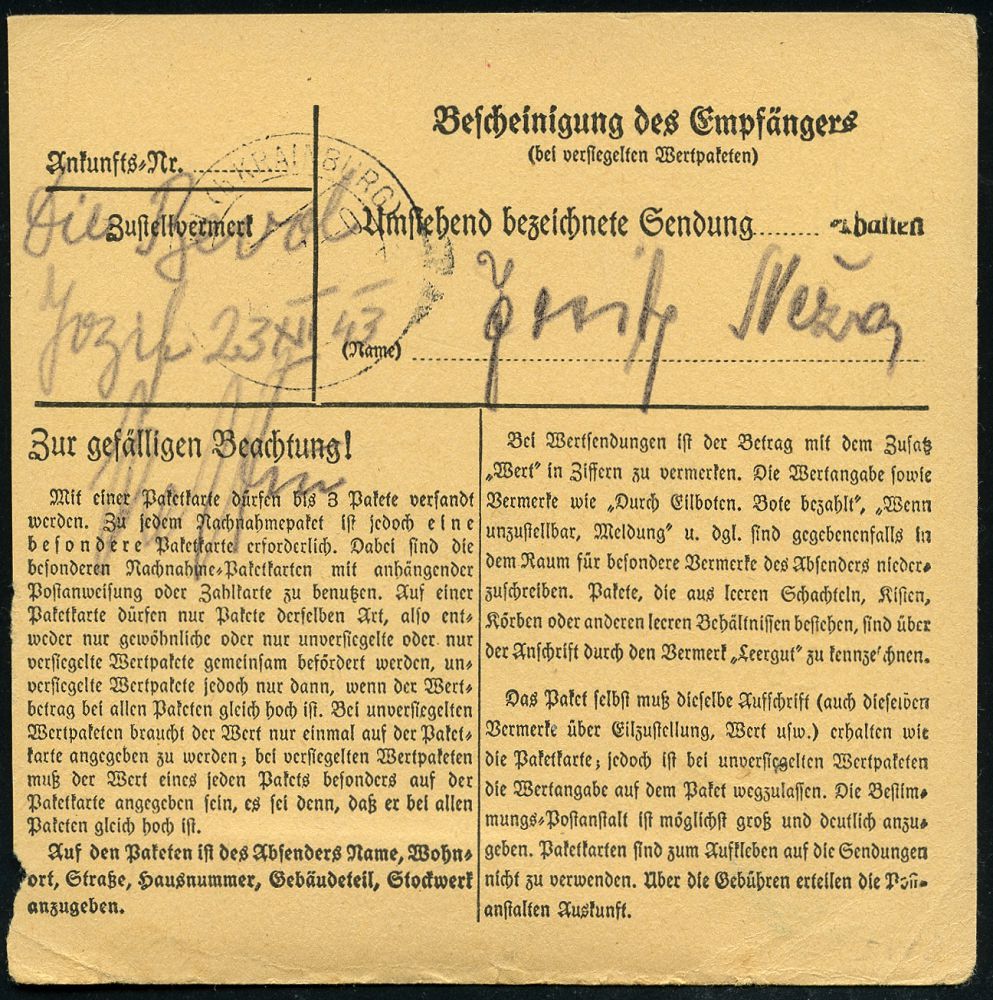 Bescheinigung des Empfängers
(bei versiegelten Wertpaketen)
Ankunfts-Nr.
KRAINBURG
Zustellvermerk
Umstehend bezeichnete Sendung........ erhalten
Die
23 XII 43
(Name)
Zur gefälligen Beachtung!
Mit einer Paketkarte dürfen bis 3 Pakete versandt
werden. Zu jedem Nachnahmepaket ist jedoch eine
besondere Paketkarte erforderlich. Dabei sind die
besonderen Nachnahme-Paketkarten mit anhängender
Postanweisung oder Zahlkarte zu benutzen. Auf einer
Paketkarte dürfen nur Pakete derselben Art, also ent-
weder nur gewöhnliche oder nur unversiegelte oder nur
versiegelte Wertpakete gemeinsam befördert werden, un-
versiegelte Wertpakete jedoch nur dann, wenn der Wert-
betrag bei allen Paketen gleich hoch ist. Bei unversiegelten
Wertpaketen braucht der Wert nur einmal auf der Paket-
karte angegeben zu werden; bei versiegelten Wertpaketen
muß der Wert eines jeden Pakets besonders auf der
Paketkarte angegeben sein, es sei denn, daß er bei allen
Paketen gleich hoch ist.
Auf den Paketen ist des Absenders Name, Wohn-
ort, Straße, Hausnummer, Gebäudeteil, Stockwerk
anzugeben.
Bei Wertsendungen ist der Betrag mit dem Zusatz
„Wert“ in Ziffern zu vermerken. Die Wertangabe sowie
Vermerke wie „Durch Eilboten. Bote bezahlt“, „Wenn
unzustellbar, Meldung“ u. dgl. sind gegebenenfalls in
dem Raum für besondere Vermerke des Absenders nieder-
zuschreiben. Pakete, die aus leeren Schachteln, Kisten,
Körben oder anderen leeren Behältnissen bestehen, sind über
der Anschrift durch den Vermerk „Leergut“ zu kennzeichnen.
Das Paket selbst muß dieselbe Aufschrift (auch dieselben
Vermerke über Eilzustellung, Wert usw.) erhalten wie
die Paketkarte; jedoch ist bei unversiegelten Wertpaketen
die Wertangabe auf dem Paket wegzulassen. Die Bestim-
mungs-Postanstalt ist möglichst groß und deutlich anzu-
geben. Paketkarten sind zum Aufkleben auf die Sendungen
nicht zu verwenden. Über die Gebühren erteilen die Post-
anstalten Auskunft.